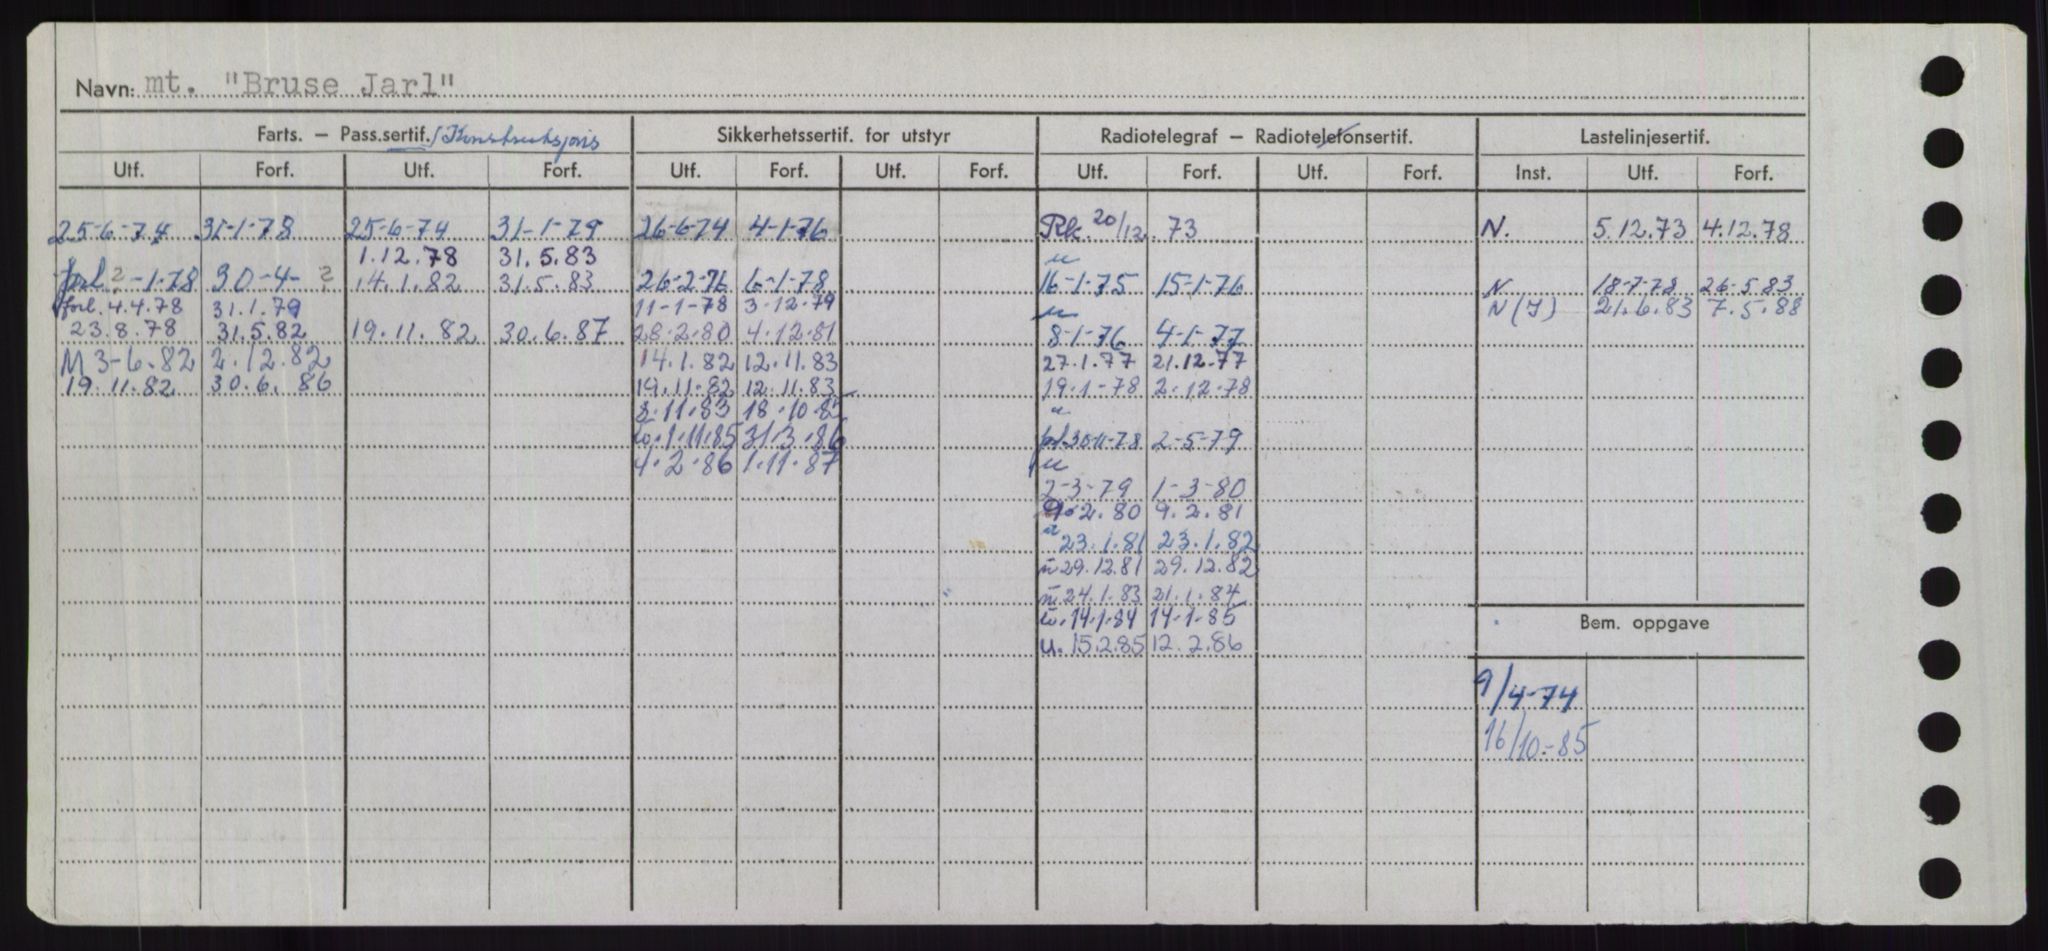 Navn: mt. "Bruse Jarl"
Farts. – Pass.sertif./Konstruksjons Sikkerhetssertif. for utstyr Radiotelegraf – Radiotelefonsertif. Lastelinjesertif.
Utf. Forf. Utf. Forf. Utf. Forf. Utf. Forf. Utf. Forf. Utf. Forf. Inst. Utf. Forf.
25-6-74 31-1-78 25-6-74 31-1-79 26-6-74 4-1-76 Rk. 20/12. 73 N. 5.12.73 4.12.78
1.12.78 31.5.83 u
forl ? -1-78 30-4- ? 14.1.82 31.5.83 26-2-76 6-1-78 16-1-75 15-1-76 N 18-7-78 26-5.83
forl. 4.4.78 31.1.79 11-1-78 3-12-79 u N (I) 21.6.83 7.5.88
23.8.78 31.5.82 19.11.82 30.6.87 28.2.80 4.12.81 8-1-76 4-1-77
M 3-6.82 2.12.82 14.1.82 12.11.83 27.1.77 21.12.77
19.11.82 30.6.86 19.11.82 12.11.83 19.1-78 2.12-78
8.11.83 18.10.85 u
u.1.11.85 31.3.86 fl.30-11-78 2-5-79
4.2.86 1.11.87 u
2-3-79 1-3-80
9.2.80 9.2.81
u 23.1.81 23.1.82
u 29.12.81 29.12.82
u. 24.1.83 21.1.84
u. 14.1.84 14.1.85 Bem. oppgave
u. 15.2.85 12.2.86
9/4-74
16/10.-85